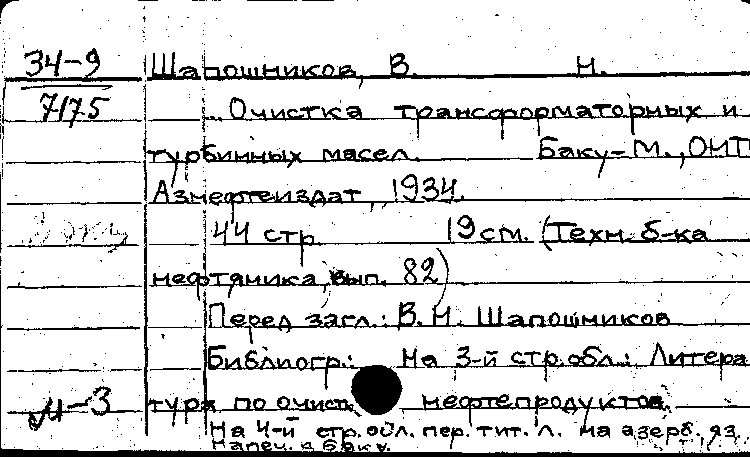 34-9 Шапошников, В. Н.
7175 ...Очистка трансформаторных и
турбинных масел. Баку-М., ОНТ
Азнефтеиздат, 1934.
44 стр. 19 см. (Техн. б-ка
нефтяника, вып. 82)
Перед загл.: В. Н. Шапошников
Библиогр.: На 3-й стр. обл.: Литера
М-3 тура по очист нефтепродуктов.
На 4-й стр. обл. пер. тит. л. на азерб. яз.
Напеч. в Баку.